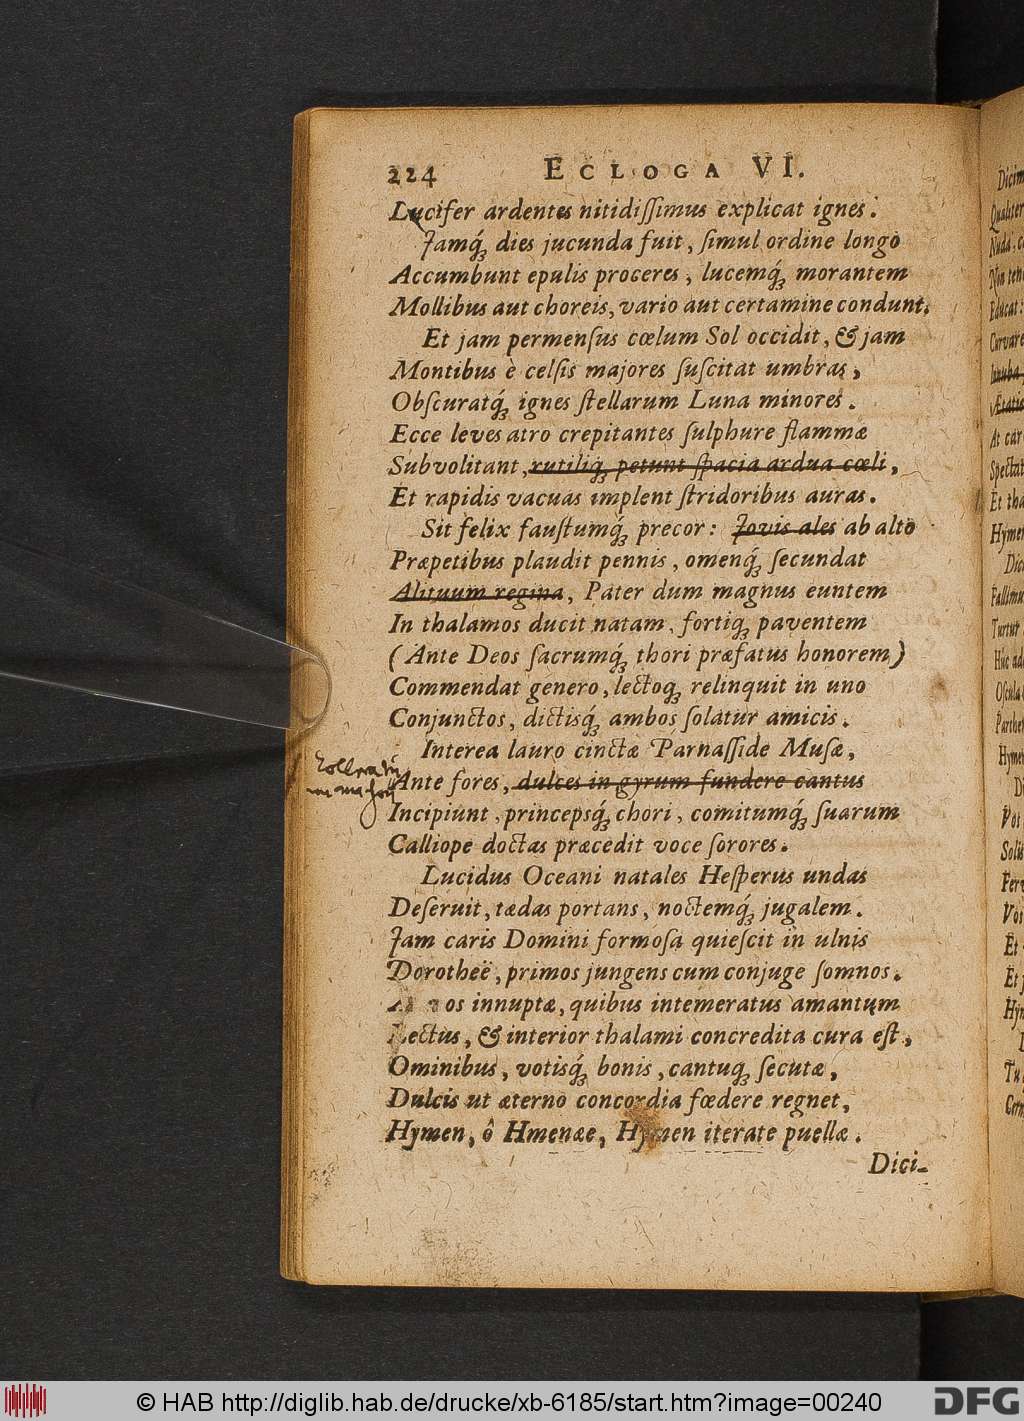 224 ECLOGA VI.
Lucifer ardentes nitidiſſimus explicat ignes.
Jamq́; dies jucunda fuit, ſimul ordine longo
Accumbunt epulis proceres, lucemq́; morantem
Mollibus aut choreis, vario aut certamine condunt.
Et jam permenſus cœlum Sol occidit, & jam
Montibus è celſis majores ſuſcitat umbras,
Obſcuratq́; ignes ſtellarum Luna minores.
Ecce leves atro crepitantes ſulphure flammæ
Subvolitant, rutiliq; petunt ſpacia ardua cœli,
Et rapidis vacuas implent ſtridoribus auras.
Sit felix fauſtumq́; precor: Jovis ales ab alto
Præpetibus plaudit pennis, omenq́; ſecundat
Alituum regina, Pater dum magnus euntem
In thalamos ducit natam, fortiq; paventem
(Ante Deos ſacrumq́; thori præfatus honorem)
Commendat genero, lectoq; relinquit in uno
Conjunctos, dictisq́; ambos ſolatur amicis.
Interea lauro cinctæ Parnaſſide Muſæ,
Ante fores, dulces in gyrum fundere cantus
Incipiunt, princepsq́; chori, comitumq́; ſuarum
Calliope doctas præcedit voce ſorores.
Lucidus Oceani natales Heſperus undas
Deſeruit, tædas portans, noctemq́; jugalem.
Jam caris Domini formoſa quieſcit in ulnis
Dorotheë, primos jungens cum conjuge ſomnos.
os innuptæ, quibus intemeratus amantum
Lectus, & interior thalami concredita cura eſt,
Ominibus, votisq́; bonis, cantuq; ſecutæ,
Dulcis ut æterno concordia fœdere regnet,
Hymen, ô Hmenæe, Hymen iterate puellæ.
Dici-
Dicim
Qualiter
Non ten
Educat:
Curvare
Innuba
At car
Spectat
Et tha
Hymen
Dic
Fallimu
Turtur
Huc ad
Oſcula
Hymen
Vos
Solis
Ferv
Vos
Et
Et j
Hym
© HAB http://diglib.hab.de/drucke/xb-6185/start.htm?image=00240
DFG